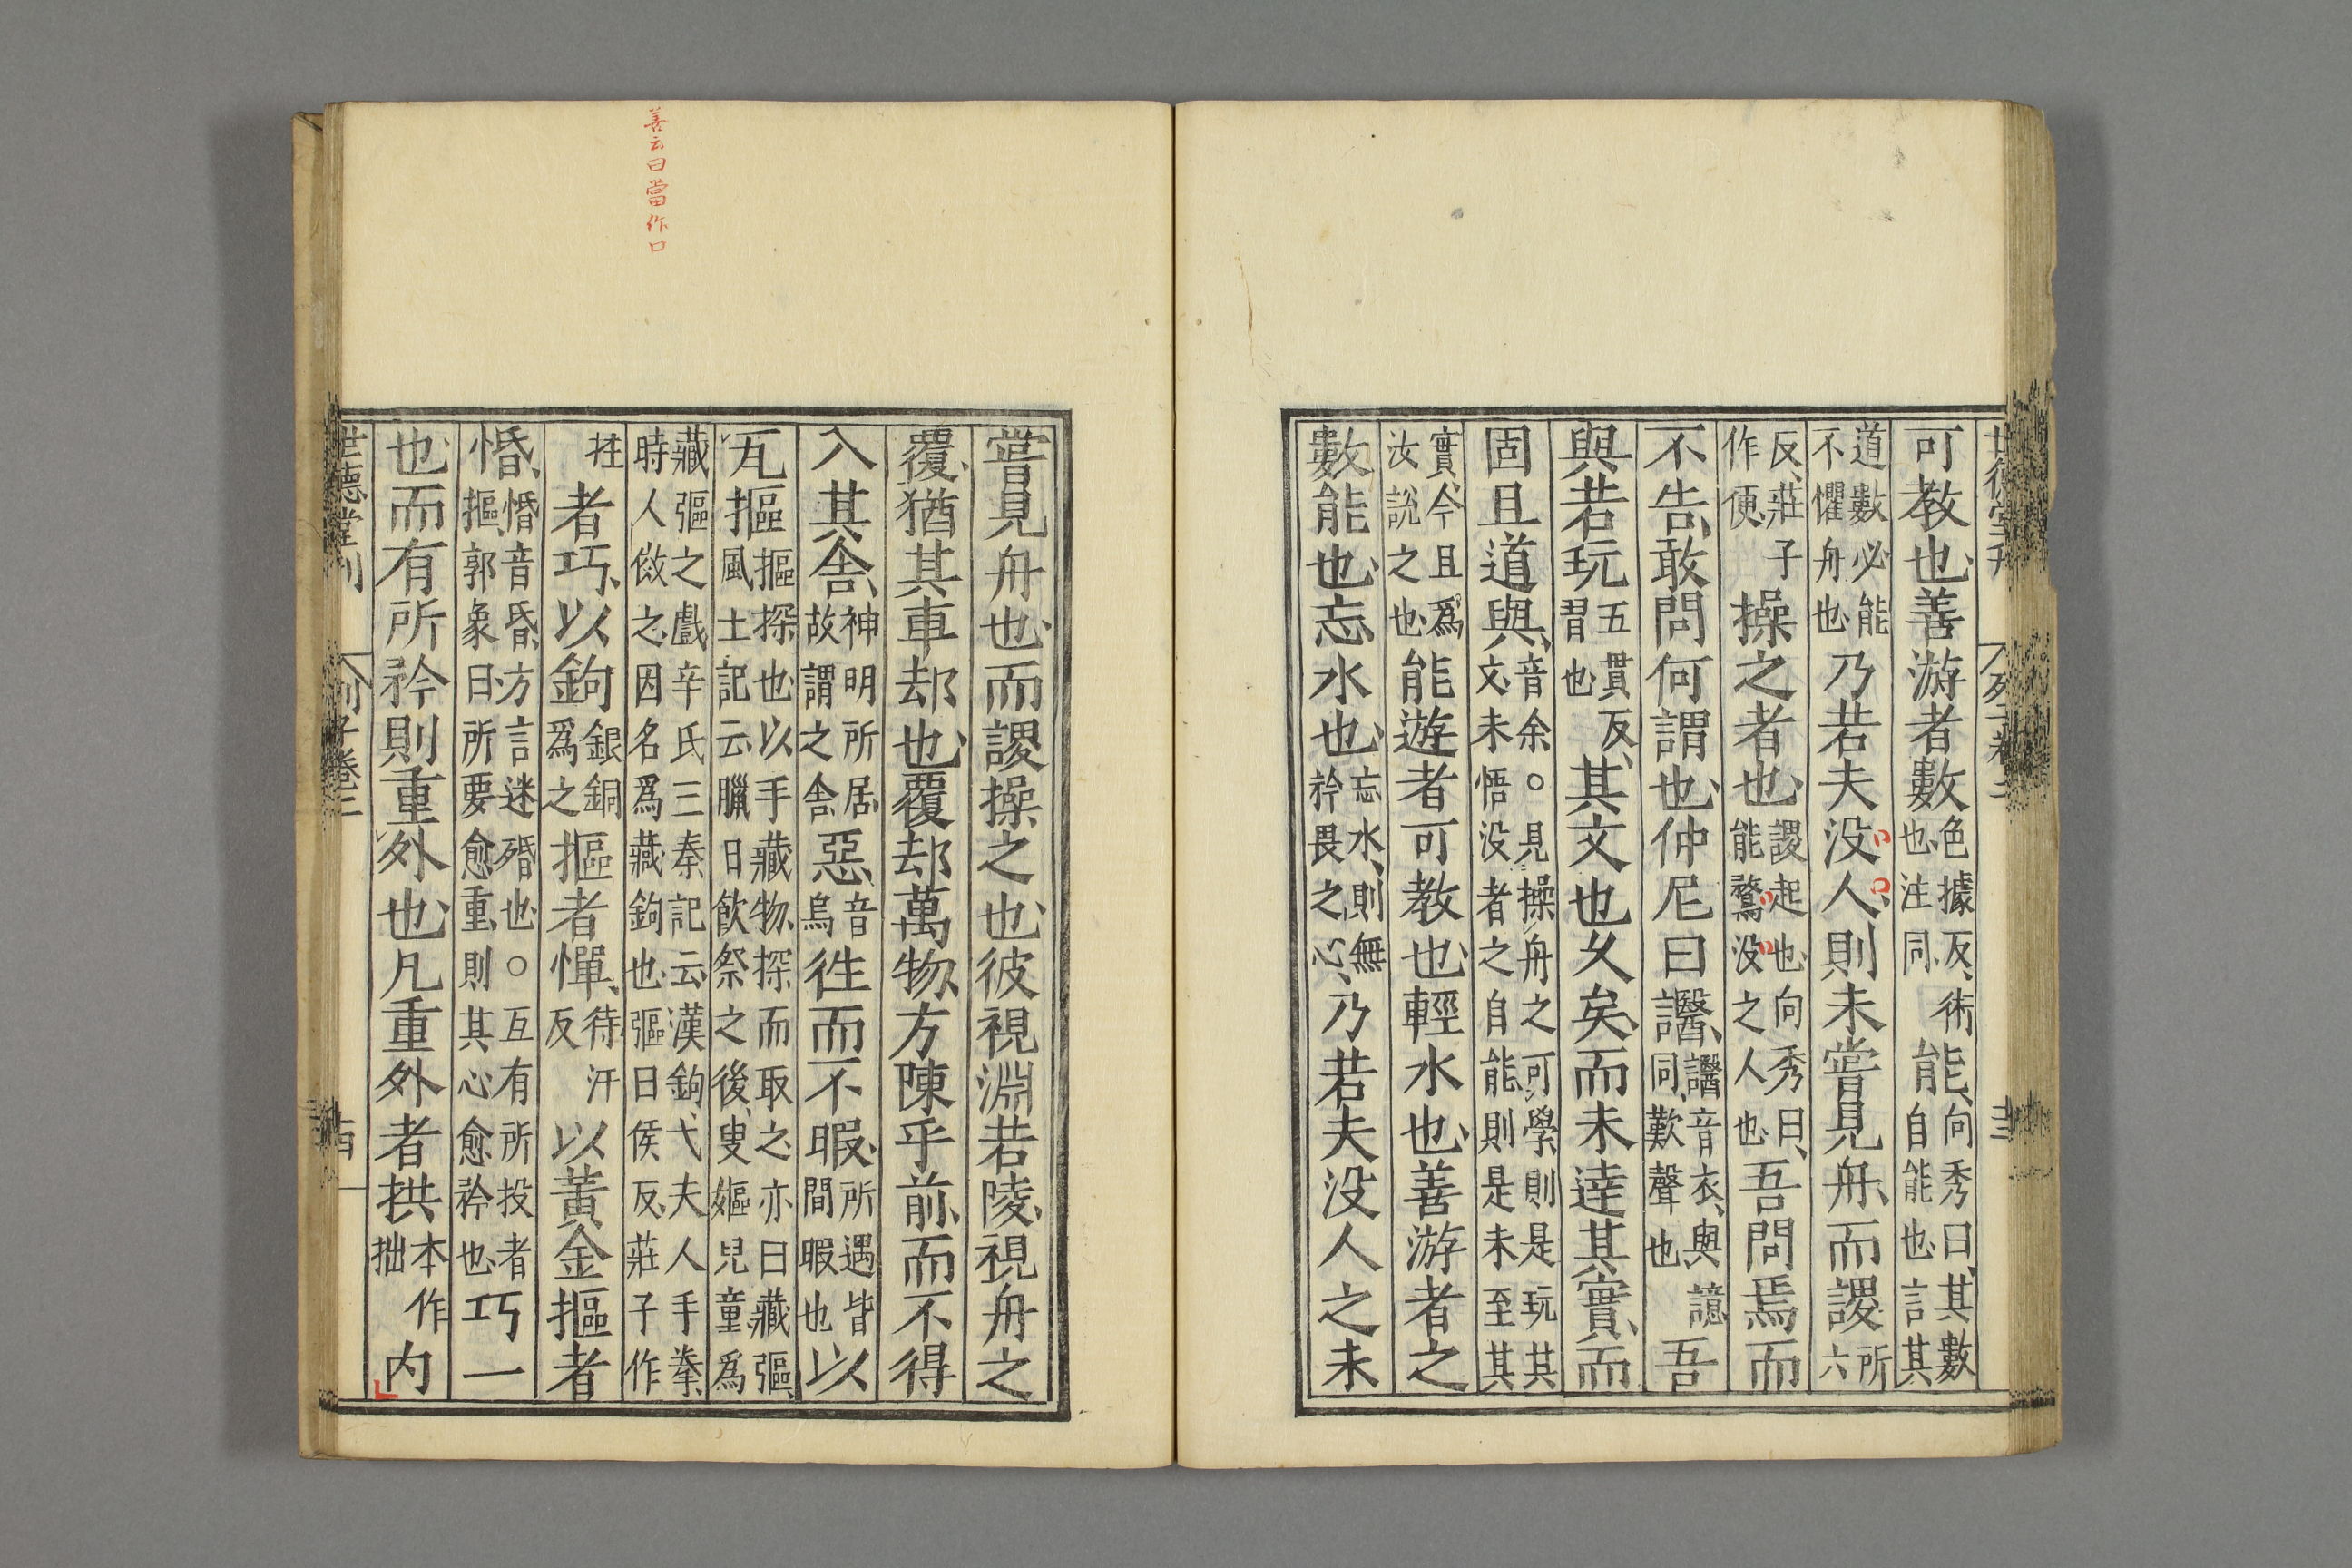 可教也善游者數色據反術也注同能向秀曰其數自能也言其
道數必能不懼舟也乃若夫没人則未嘗見舟而謖所六
反莊子作便操之者也謖起也向秀曰能鶩没之人也吾問焉而
不告敢問何謂也仲尼曰𧮒𧮒音衣與譩同歎聲也吾
與若玩五貫反習也其文也久矣而未達其實而
固且道與音余○見操舟之可學則是玩其文未悟没者之自能則是未至其
實今且爲汝說之也能遊者可教也輕水也善游者之
數能也忘水也忘水則無矜畏之心乃若夫没人之未
嘗見舟也而謖操之也彼視淵若陵視舟之
覆猶其車却也覆却萬物方陳乎前而不得
入其舍神明所居故謂之舍惡音烏徃而不暇所遇皆間暇也以
瓦摳摳探也以手藏物探而取之亦曰藏彄風土記云臘日飲祭之後叟嫗兒童爲
藏彄之戲辛氏三秦記云漢鉤弋夫人手拳時人傚之因名爲藏鉤也彄曰侯反莊子作
拄者巧以鉤銀銅爲之摳者憚待汗反以黃金摳者
惛惛音昏方言迷殙也○互有所投者摳郭象曰所要愈重則其心愈矜也巧一
也而有所矜則重外也凡重外者拱本作拙内
世德堂刊
列子卷二
善云曰當作口